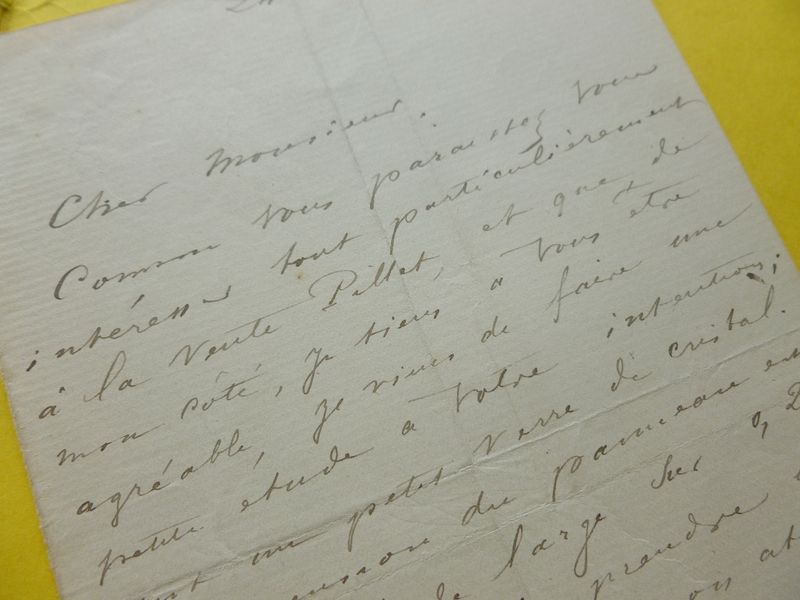 Cher Monsieur,
Comme vous paraissez vous
intéresser tout particulièrement
à la vente Pillet, et que, de
mon côté, je tiens à vous être
agréable, je viens de faire une
petite étude à votre intention;
un petit verre de cristal.
dimension du panneau est
de large sur 0,
prendre